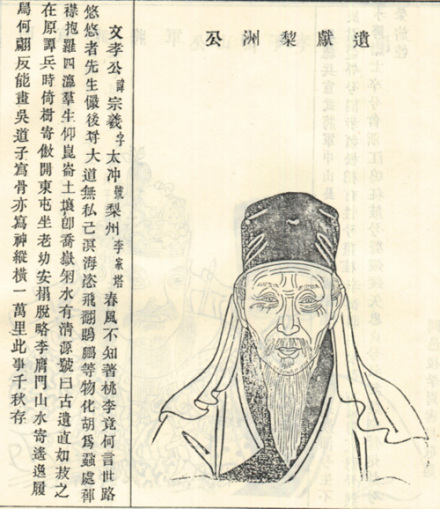 遺獻梨洲公
文孝公諱宗羲字太冲號梨州李家塔 春風不知著桃李竟何言世路
悠悠者先生儼後尊大道無私己溟海恣飛翻鵾鵬等物化胡爲蝨處褌
襟抱羅四瀛羣生仰崑崙土壤卽喬嶽涓水有清源號曰古遺直如菽之
在原譚兵時倚樹寄傲開東屯坐老幼安榻脫略李膺門山水寄遙逸履
舄何翩反能畫吳道子寫骨亦寫神縱橫一萬里此事千秋存